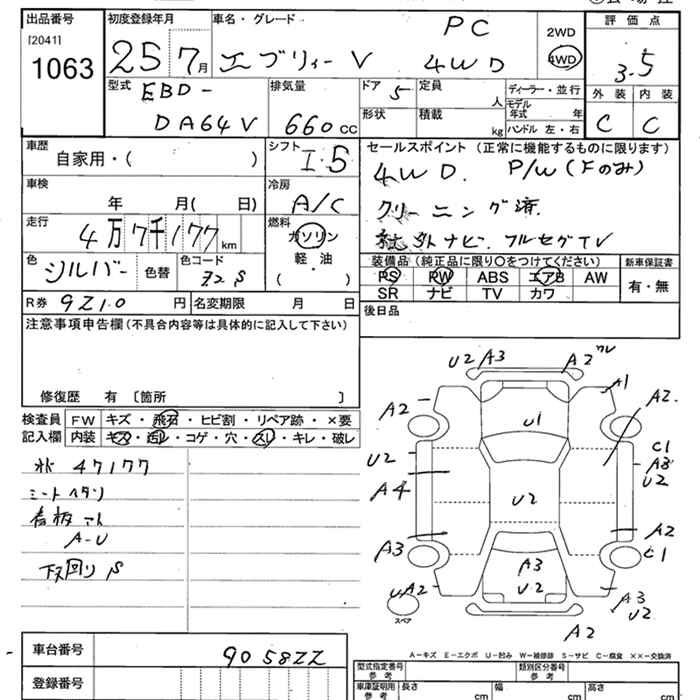 出品番号 初度登録年月 車名・グレード 評価点
[2041]
1063
25 7月 エブリィー V PC 4WD
2WD
4WD
3.5
外装 内装
C C
型式 EBD-
DA64V
排気量
660cc
ドア 5 定員 人
形状 積載 kg
ディーラー・並行
モデル年式 年
ハンドル 左・右
車歴
自家用・( )
シフト
I.5
車検
年 月( 日)
冷房
A/C
走行
4万7千177km
燃料
ガソリン
軽・油
( )
色 シルバー 色替 色コード Z2S
R券 9210円 名変期限 月 日
セールスポイント(正常に機能するものに限ります)
4WD. P/W(Fのみ)
クリーニング済.
社外ナビ.フルセグTV
装備品(純正品に限り○をつけてください) 新車保証書
PS PW ABS エアB AW
SR ナビ TV カワ
有・無
後日品
注意事項申告欄(不具合内容等は具体的に記入して下さい)
修復歴 有 〔箇所 〕
検査員 FW キズ・飛石・ヒビ割・リペア跡・×要
記入欄 内装 キズ・汚レ・コゲ・穴・スレ・キレ・破レ
47177
シートヘタリ
看板
A-U
下回り S
U2 A3 A2 ワレ
A2 A1 A2
U1
U2 C1
A3
U2
A4 U2
A3 A2
C1
A3
U2
A2 A3
U2
スペア
A2
A-キズ E-エクボ U-凹み W-補修跡 S-サビ C-腐食 ××-交換済
車台番号 905822
登録番号
型式指定番号 参考 類別区分番号 参考
車庫証明用 参考 長さ cm 幅 cm 高さ cm